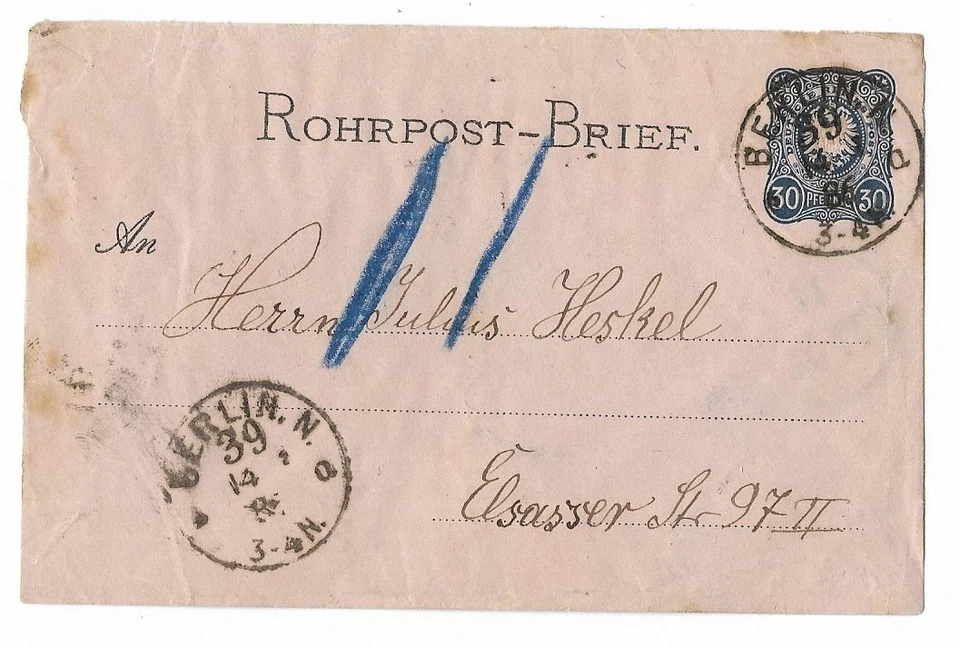 ROHRPOST-BRIEF.
BERLIN. N.
39
d
30 PFENNIG 30
3-4N.
An
Herrn Julius Heskel
BERLIN. N.
39
d
14
3-4N.
Elsasser St. 97 II